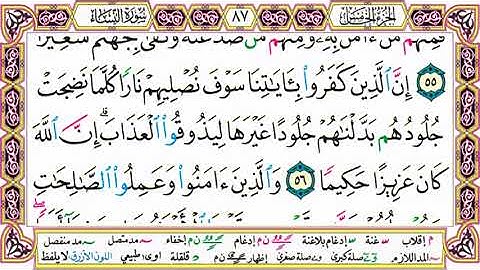 الجزء الخامس ٨٧ سورة النساء
فمنهم من ءامن به ومنهم من صد عنه وكفى بجهنم سعيرا
٥٥ إِنَّ ٱلَّذِينَ كَفَرُوا۟ بِـَٔايَـٰتِنَا سَوْفَ نُصْلِيهِمْ نَارًا كُلَّمَا نَضِجَتْ
جُلُودُهُم بَدَّلْنَـٰهُمْ جُلُودًا غَيْرَهَا لِيَذُوقُوا۟ ٱلْعَذَابَ ۗ إِنَّ ٱللَّهَ
كَانَ عَزِيزًا حَكِيمًا ٥٦ وَٱلَّذِينَ ءَامَنُوا۟ وَعَمِلُوا۟ ٱلصَّـٰلِحَـٰتِ
م إقلاب غنة إدغام بلاغنة ن م إدغام ن م إخفاء مد متصل مد منفصل
المد اللازم صلة كبرى صلة صغرى إظهار ن م قلقلة اوى طبيعي اللون الأزرق لا يلفظ